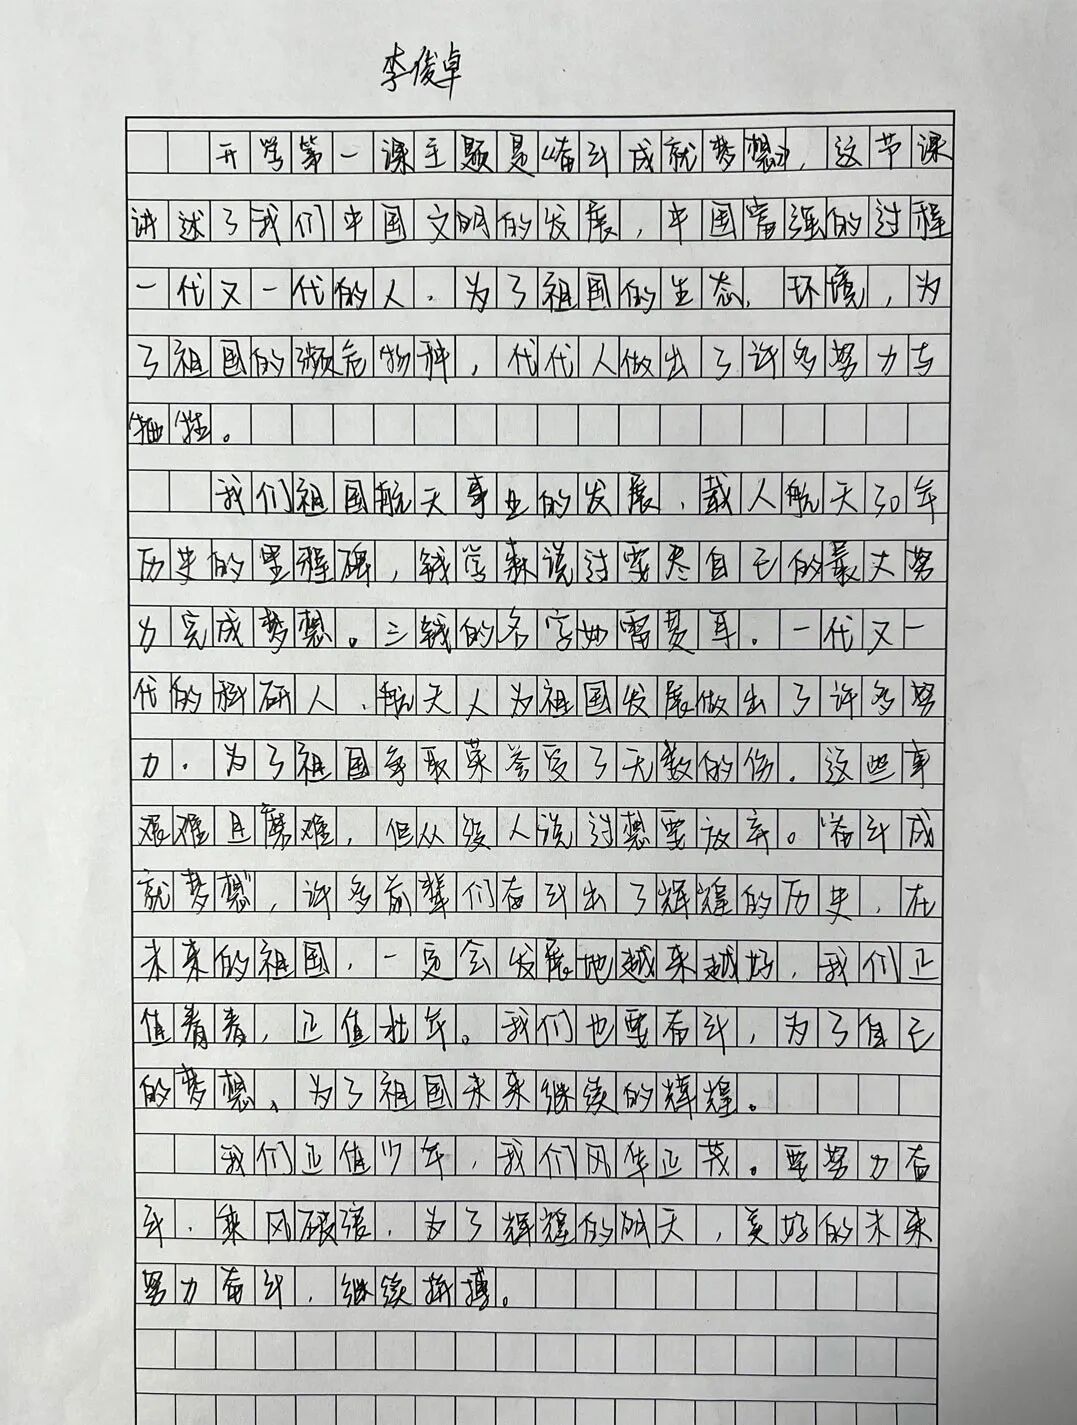 李俊卓
开学第一课主题是《奋斗成就梦想》，这节课
讲述了我们中国文明的发展，中国富强的过程
一代又一代的人，为了祖国的生态，环境，为
了祖国的濒危物种，代代人做出了许多努力与
牺牲。
我们祖国航天事业的发展，载人航天30年
历史的里程碑，钱学森说过要尽自己的最大努
力完成梦想。三钱的名字如雷贯耳。一代又一
代的科研人、航天人为祖国发展做出了许多努
力，为了祖国争取荣誉受了无数的伤。这些事
艰难且磨难，但从没人说过想要放弃。“奋斗成
就梦想”，许多前辈们奋斗出了辉煌的历史，在
未来的祖国，一定会发展地越来越好，我们正
值青春，正值壮年。我们也要奋斗，为了自己
的梦想、为了祖国未来继续的辉煌。
我们正值少年，我们风华正茂。要努力奋
斗，乘风破浪，为了辉煌的明天，美好的未来
努力奋斗，继续拼搏。